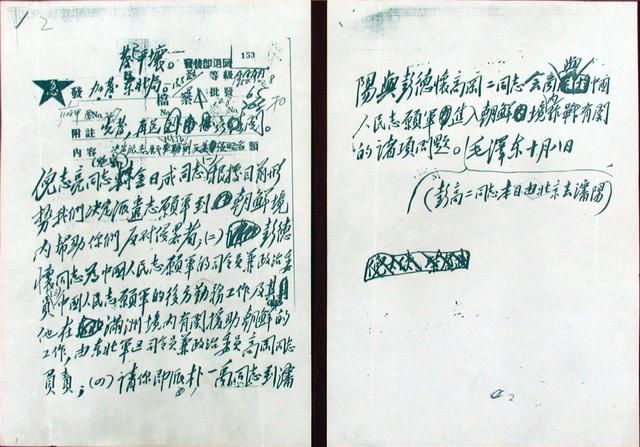 2
發後即退回
153
急 發 東北局 等級 AAAA
檔案 批發
No. No.
附註
内容
倪志亮同志轉金日成同志(一)根據目前形
勢我們决定派遣志願軍到朝鮮境
内幫助你們反对侵畧者;(二)彭德
懷同志為中國人民志願軍的司令員兼政治委
員中國人民志願軍的後方勤務工作及其
他在滿洲境内有関援助朝鮮的
工作,由东北軍區司令員兼政治委員高岡同志
負責;(四)請你即派朴一禹同志到瀋
陽與彭德懷高岡二同志會商與中國
人民志願軍進入朝鮮境作戰有関
的諸項問題。毛澤东十月八日
(彭高二同志本日由北京去瀋陽)
2